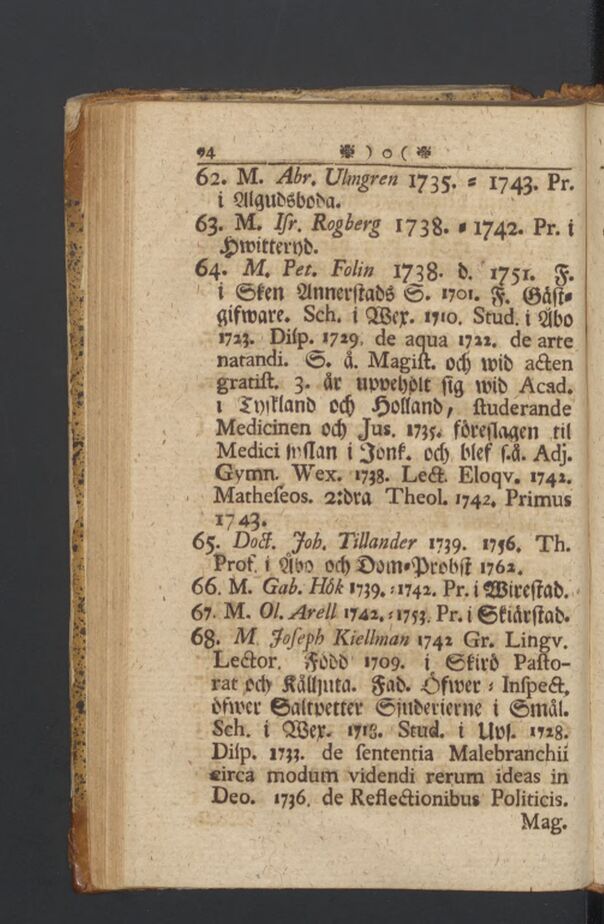 94 ❉ ) o ( ❉
62. M. Abr. Ulmgren 1735. = 1743. Pr.
i Algudsboda.
63. M. Isr. Rogberg 1738. = 1742. Pr. i
Hwitteryd.
64. M. Pet. Folin 1738. d. 1751. F.
i Sken Annerstads S. 1701. F. Gäst=
gifware. Sch. i Wex. 1710. Stud. i Åbo
1723. Disp. 1729. de aqua 1722. de arte
natandi. S. å. Magist. och wid acten
gratist. 3. år uppeholt sig wid Acad.
i Tyskland och Holland, studerande
Medicinen och Jus. 1735. föreslagen til
Medici sysslan i Jonk. och blef s.å. Adj.
Gymn. Wex. 1738. Lect. Eloqv. 1742.
Matheseos. 2:dra Theol. 1742. Primus
1743.
65. Doct. Joh. Tillander 1739. 1756. Th.
Prof. i Åbo och Dom=Probst 1762.
66. M. Gab. Hök 1739. = 1742. Pr. i Wirestad.
67. M. Ol. Arell 1742. = 1753. Pr. i Skiärstad.
68. M. Joseph Kiellman 1742 Gr. Lingv.
Lector. Född 1709. i Skirö Pasto-
rat och Källjuta. Fad. Öfwer = Inspect.
öfwer Saltpetter Sjuderierne i Smål.
Sch. i Wex. 1718. Stud. i Ups. 1728.
Disp. 1733. de sententia Malebranchii
circa modum videndi rerum ideas in
Deo. 1736. de Reflectionibus Politicis.
Mag.